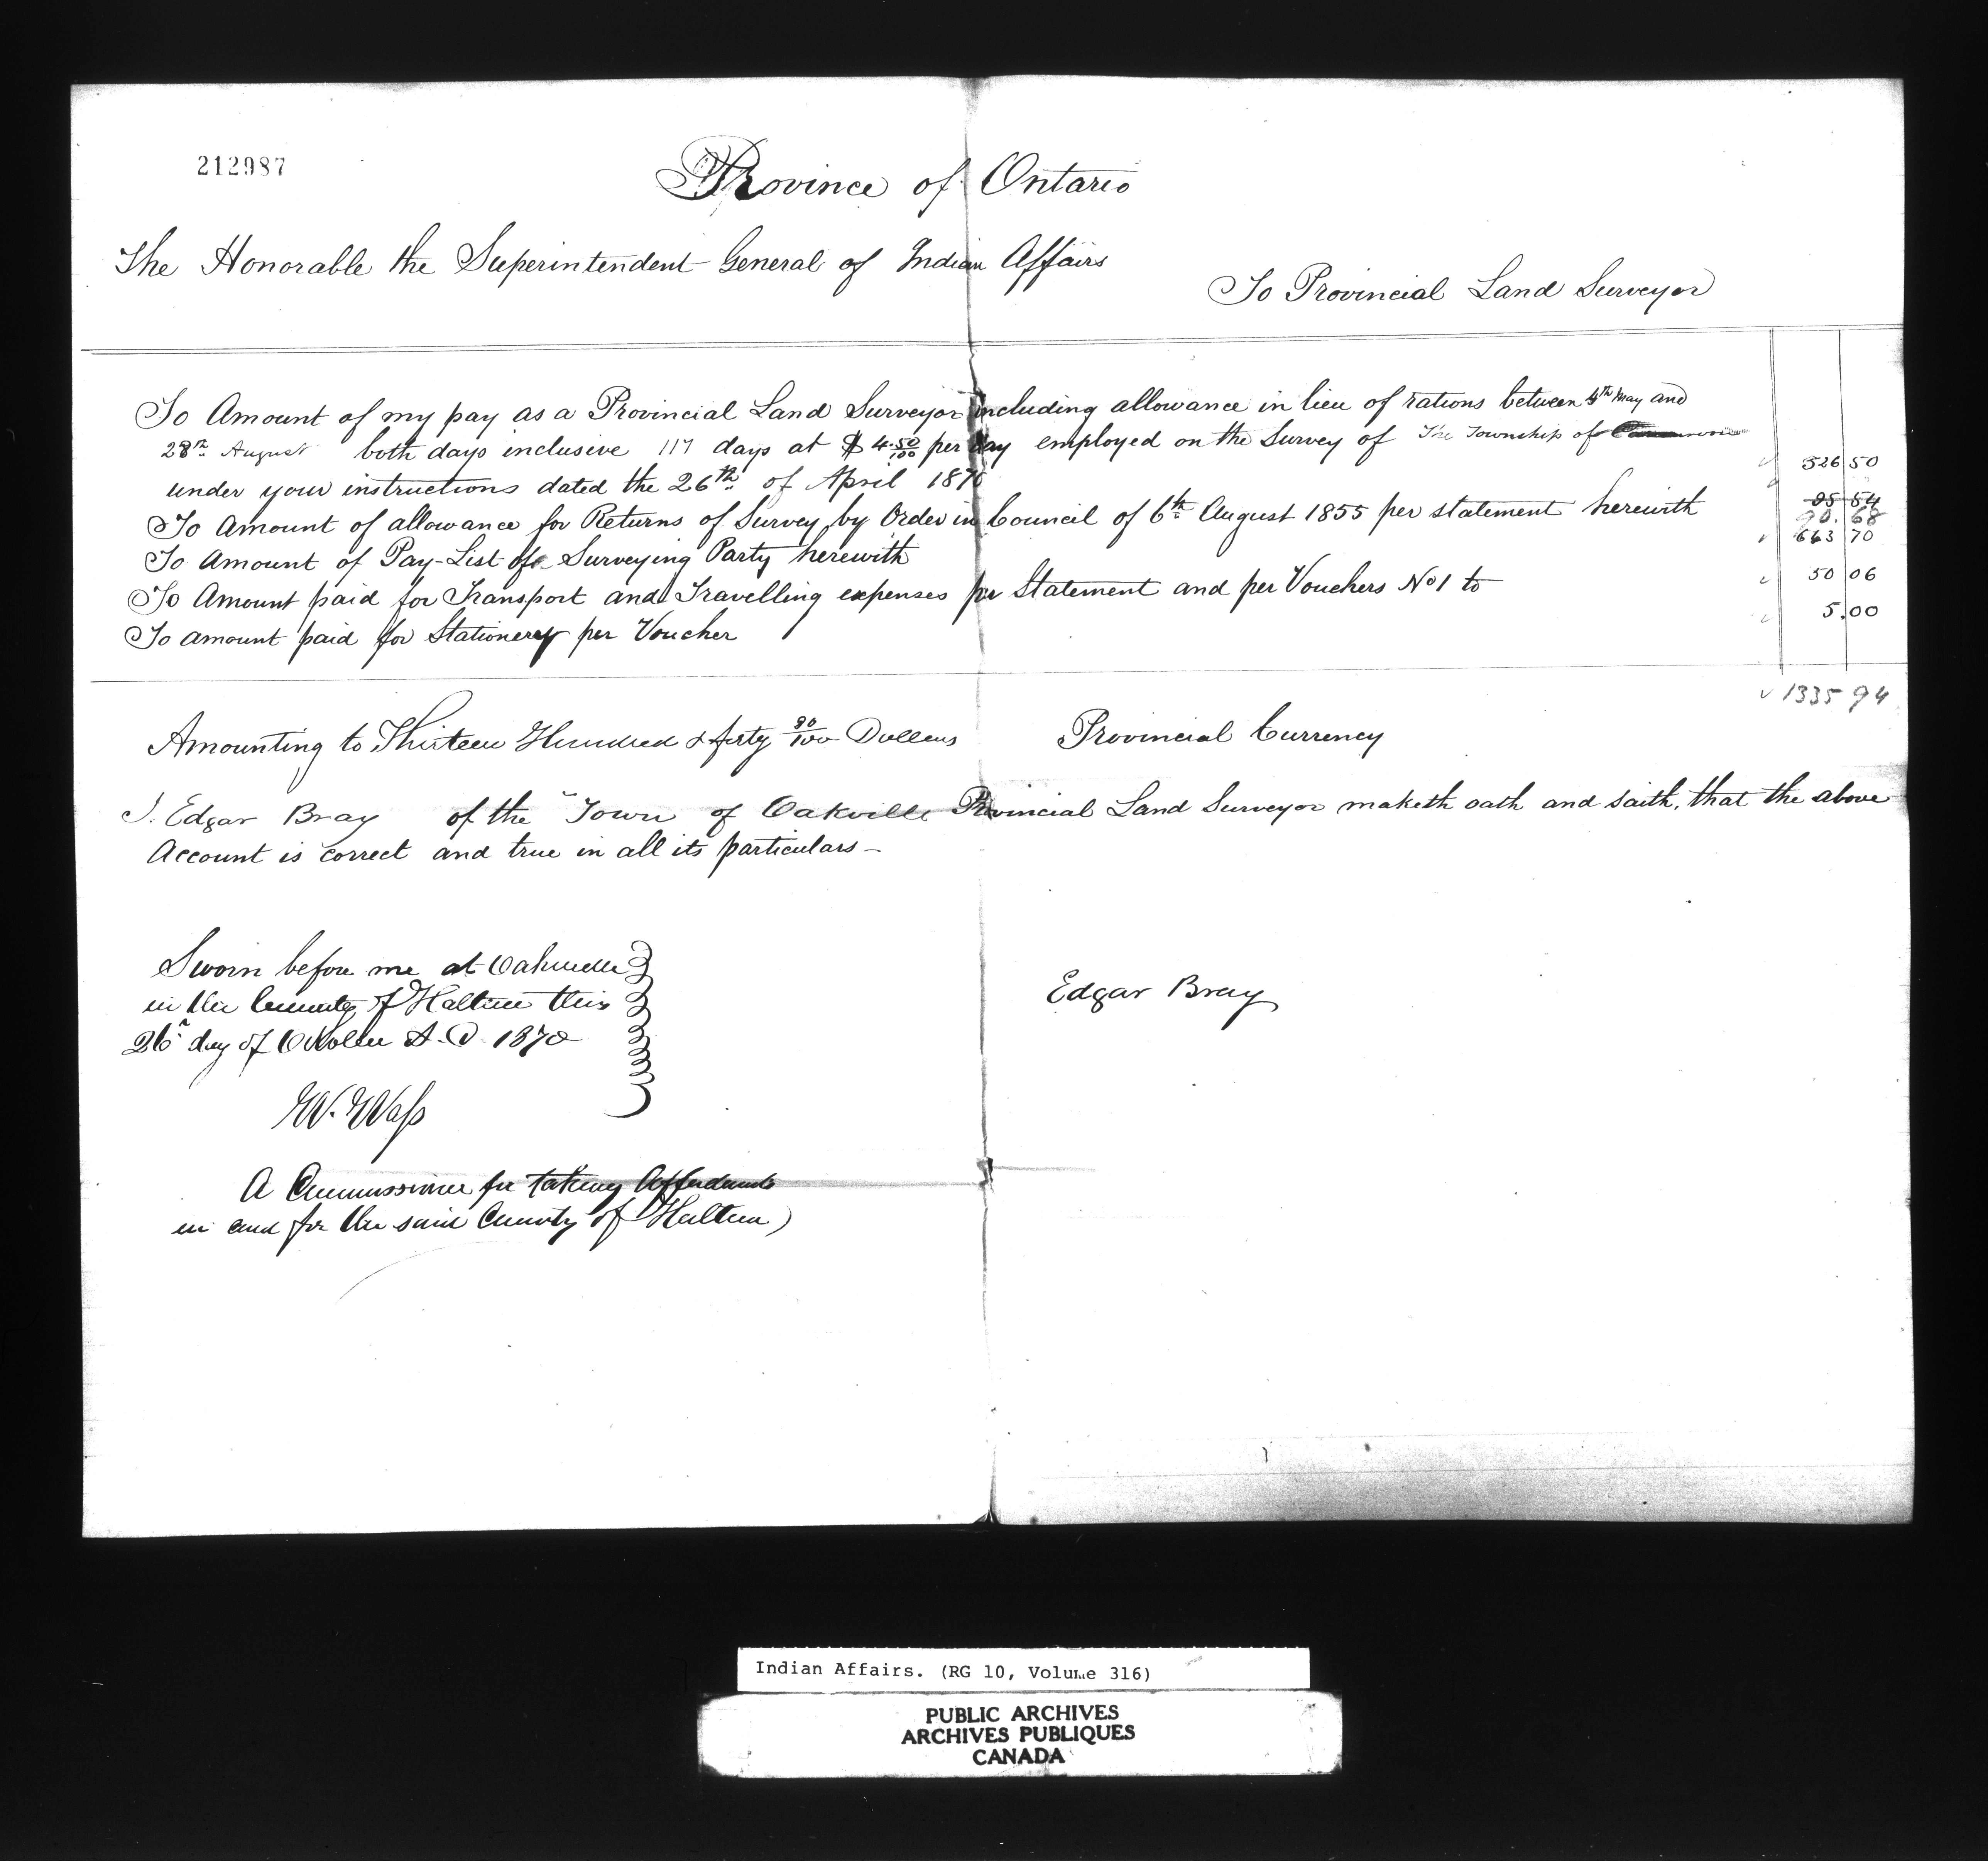 212987
Province of Ontario
The Honorable the Superintendent General of Indian Affairs
To Provincial Land Surveyor
To Amount of my pay as a Provincial Land Surveyor including allowance in lieu of rations between 4th May and
28th August both days inclusive 117 days at $ 4.50/100 per day employed on the Survey of The Township of
under your instructions dated the 26th of April 1870 526 50
To Amount of allowance for Returns of Survey by Order in Council of 6th August 1855 per statement herewith 95 54
90.68
To Amount of Pay-List of Surveying Party herewith 663 70
To Amount paid for Transport and Travelling expenses per Statement and per Vouchers No 1 to 50 06
To amount paid for Stationery per Voucher 5.00
1335 94
Amounting to Thirteen Hundred & forty 80/100 Dollars Provincial Currency
I. Edgar Bray of the Town of Oakville Provincial Land Surveyor maketh oath and saith, that the above
Account is correct and true in all its particulars—
Sworn before me at Oakville
in the County of Halton this
26th day of October A.D. 1870
Edgar Bray
W. Wass
A Commissioner for taking Affidavits
in and for the said County of Halton)
Indian Affairs. (RG 10, Volume 316)
PUBLIC ARCHIVES
ARCHIVES PUBLIQUES
CANADA